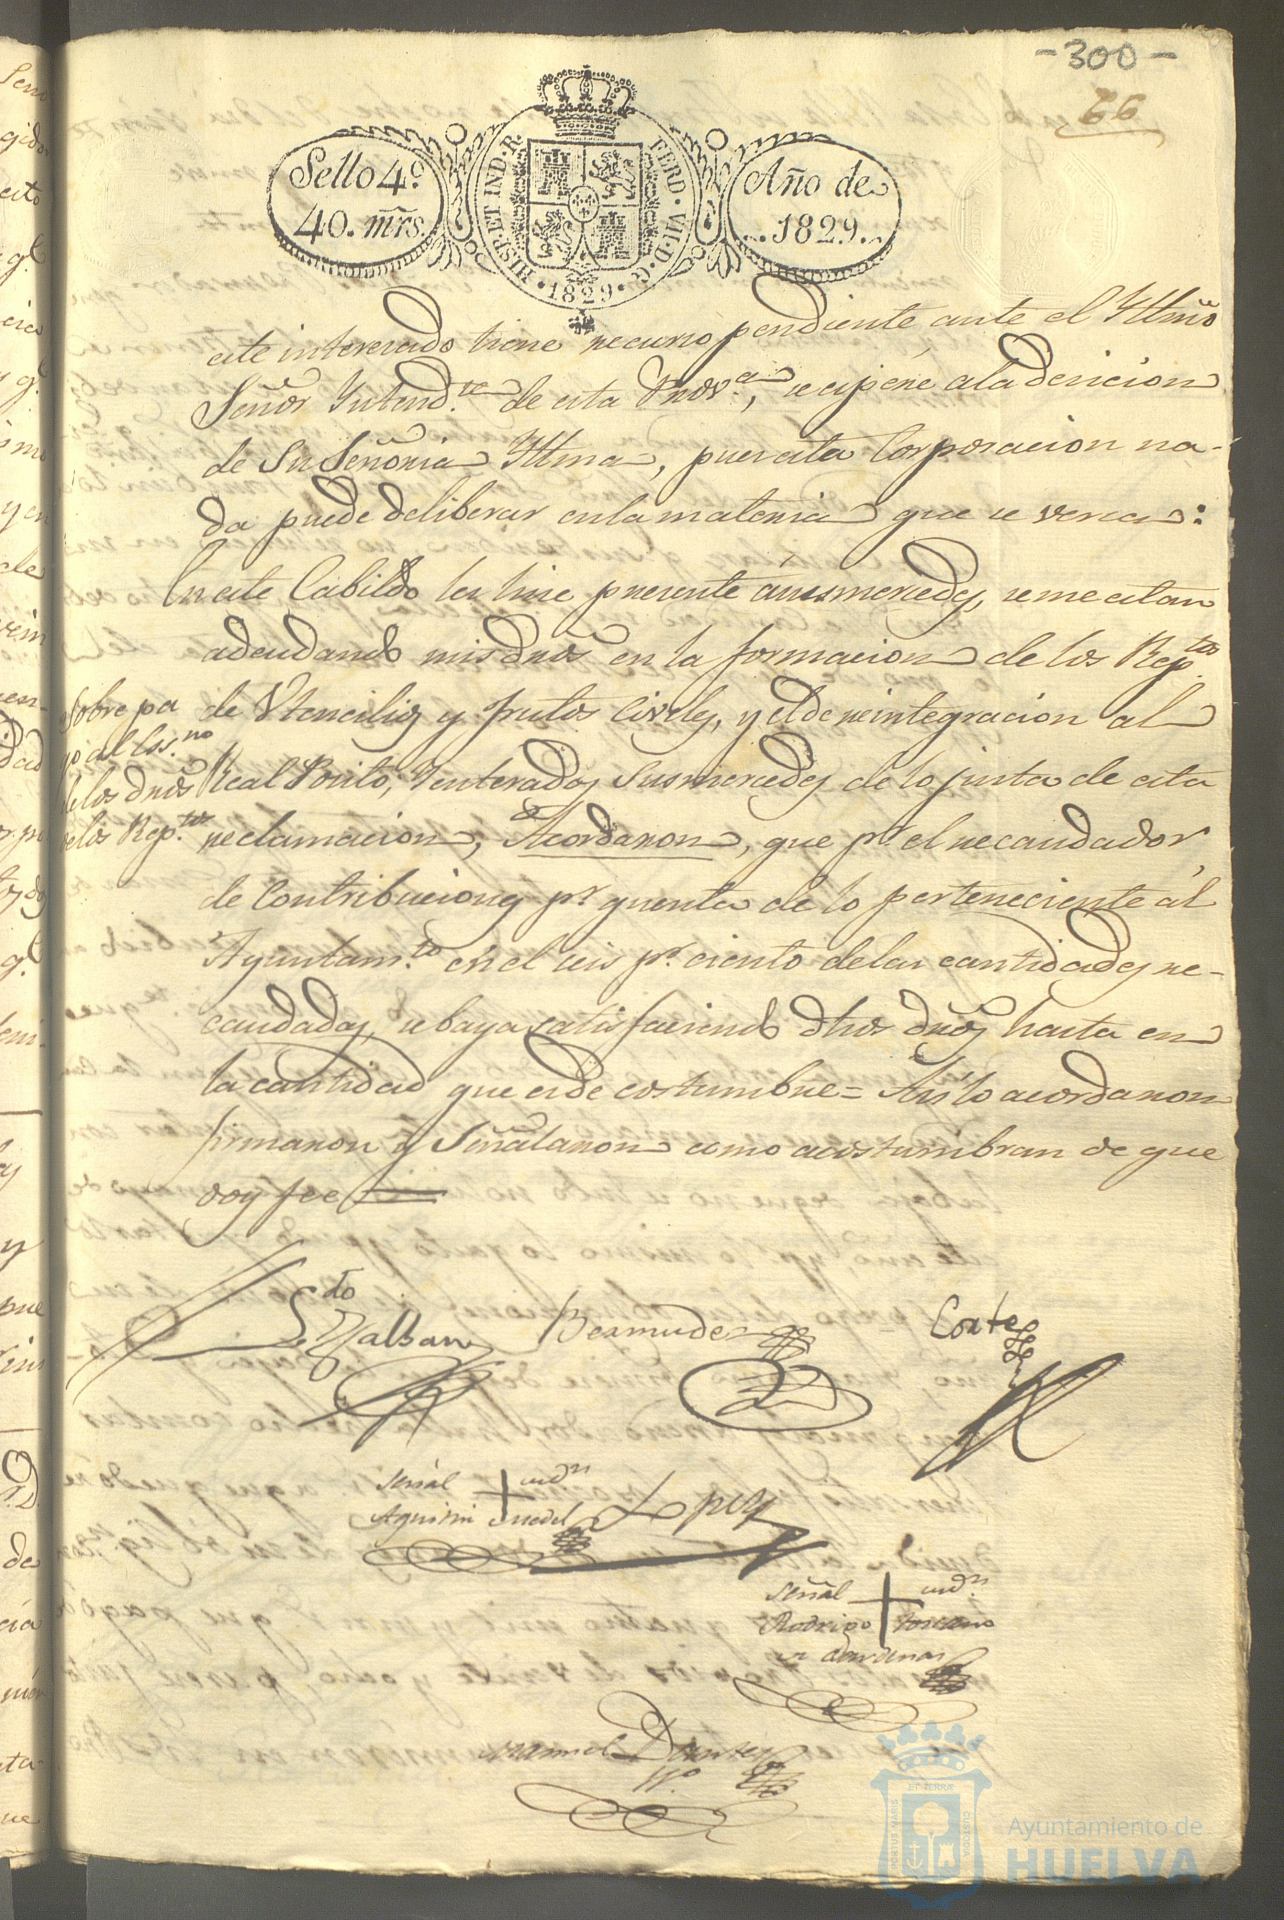 -300-
66
Sello 4º.
40. mrs.
HISP. ET IND. R.
FERD. VII. D. G.
1829.
Año de
1829.
este interesado tiene recurso pendiente ante el Yltmo
Señor Yntend.te de esta Prov.a, se espere a la decicion
de Su Señoria Yltma, pues esta Corporacion na-
da puede deliberar en la materia que se versa:
En este Cabildo les hice presente á sus mercedes, se me estan
adeudando mis dros en la formacion de los Rep.tos
de Utencilios y frutos civiles, y el de reintegracion al
Real Posito; Y enterados Sus mercedes de lo justa de esta
reclamacion, Acordaron, que pr. el recaudador
de Contribuciones pr. quenta de lo perteneciente al
Ayuntam.to en el seis pr. ciento de las cantidades re-
caudadas, se baya satisfaciendo dhos dros hasta en
la cantidad que es de costumbre = Asi lo acordaron
firmaron y Señalaron como acostumbran de que
doy fee
Sobre pa
go al Ess.no
de los dros
de los Rep.tos
L.do Malban
Bermudez
Cortes
Señal + del
Agustin
Lopez
Señal +
Rodrigo Toscano
Cardenas
Manuel
PORTUS MARIS
ET TERRÆ
CUSTODIA
Ayuntamiento de
HUELVA